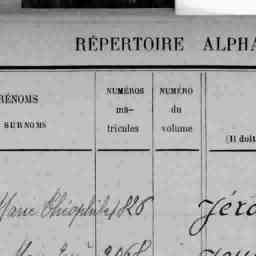 RÉPERTOIRE ALPHA
RÉNOMS
SURNOMS
NUMÉROS
ma-
tricules
NUMÉRO
du
volume
(Il doit
Marie Théophile 826 Jérô